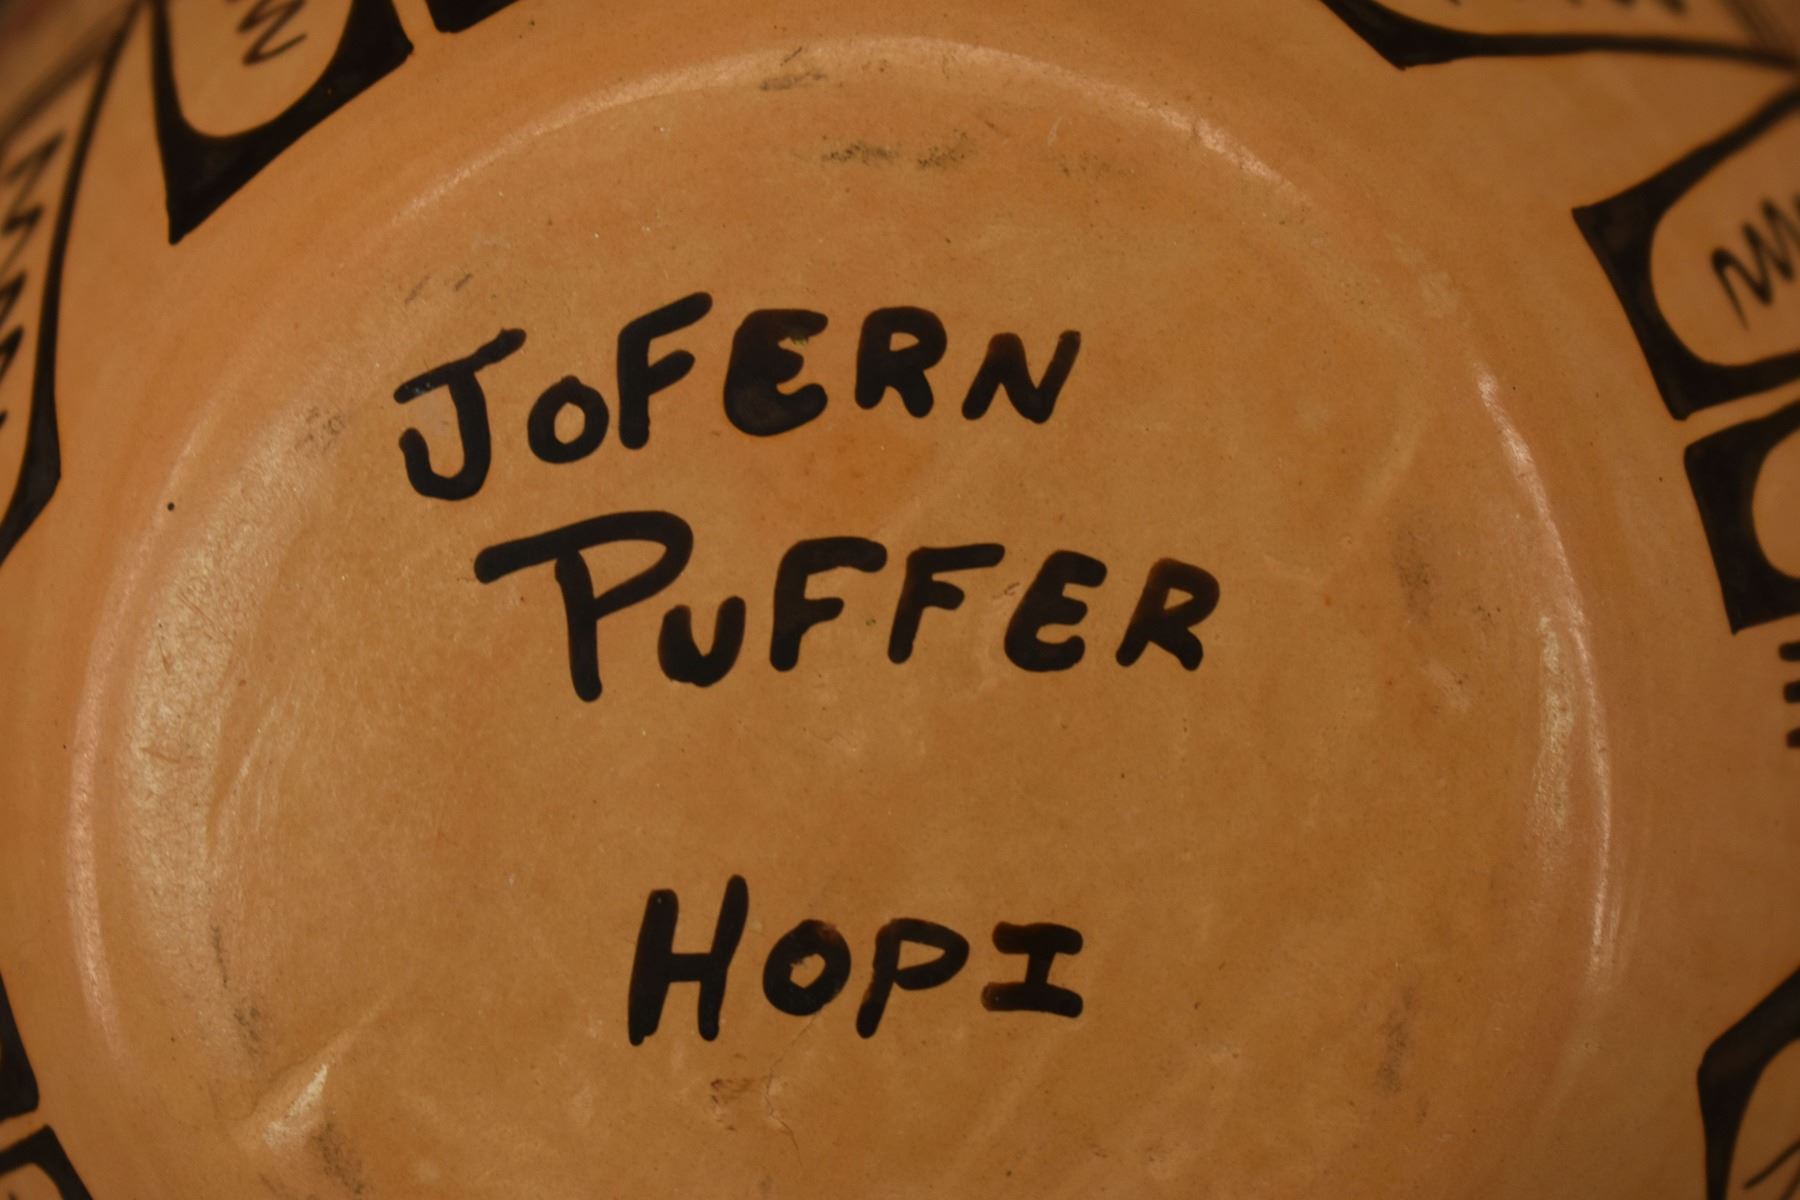 JoFERN
PuFFER
HOPI